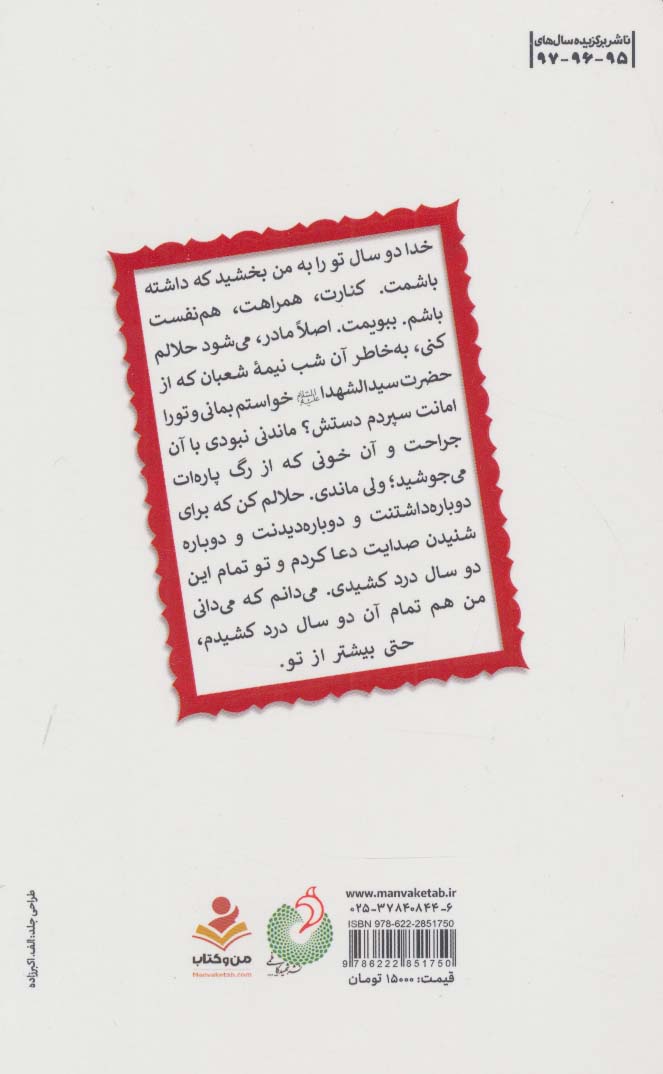 ناشر برگزیده سال‌های
۹۵-۹۶-۹۷
خدا دو سال تو را به من بخشید که داشته
باشمت. کنارت، همراهت، هم‌نفست
باشم. ببویمت. اصلاً مادر، می‌شود حلالم
کنی، به‌خاطر آن شب نیمهٔ شعبان که از
حضرت سیدالشهدا علیه‌السلام خواستم بمانی و تو را
امانت سپردم دستش؟ ماندنی نبودی با آن
جراحت و آن خونی که از رگ پاره‌ات
می‌جوشید؛ ولی ماندی. حلالم کن که برای
دوباره‌داشتنت و دوباره‌دیدنت و دوباره
شنیدن صدایت دعا کردم و تو تمام این
دو سال درد کشیدی. می‌دانم که می‌دانی
من هم تمام آن دو سال درد کشیدم،
حتی بیشتر از تو.
www.manvaketab.ir
۰۲۵-۳۷۸۴۰۸۴۴-۶
ISBN 978-622-2851750
9 786222 851750
قیمت: ۱۵۰۰۰ تومان
نشر شهید کاظمی
من و کتاب
Manvaketab.com
طراحی جلد: الف. اکبرزاده